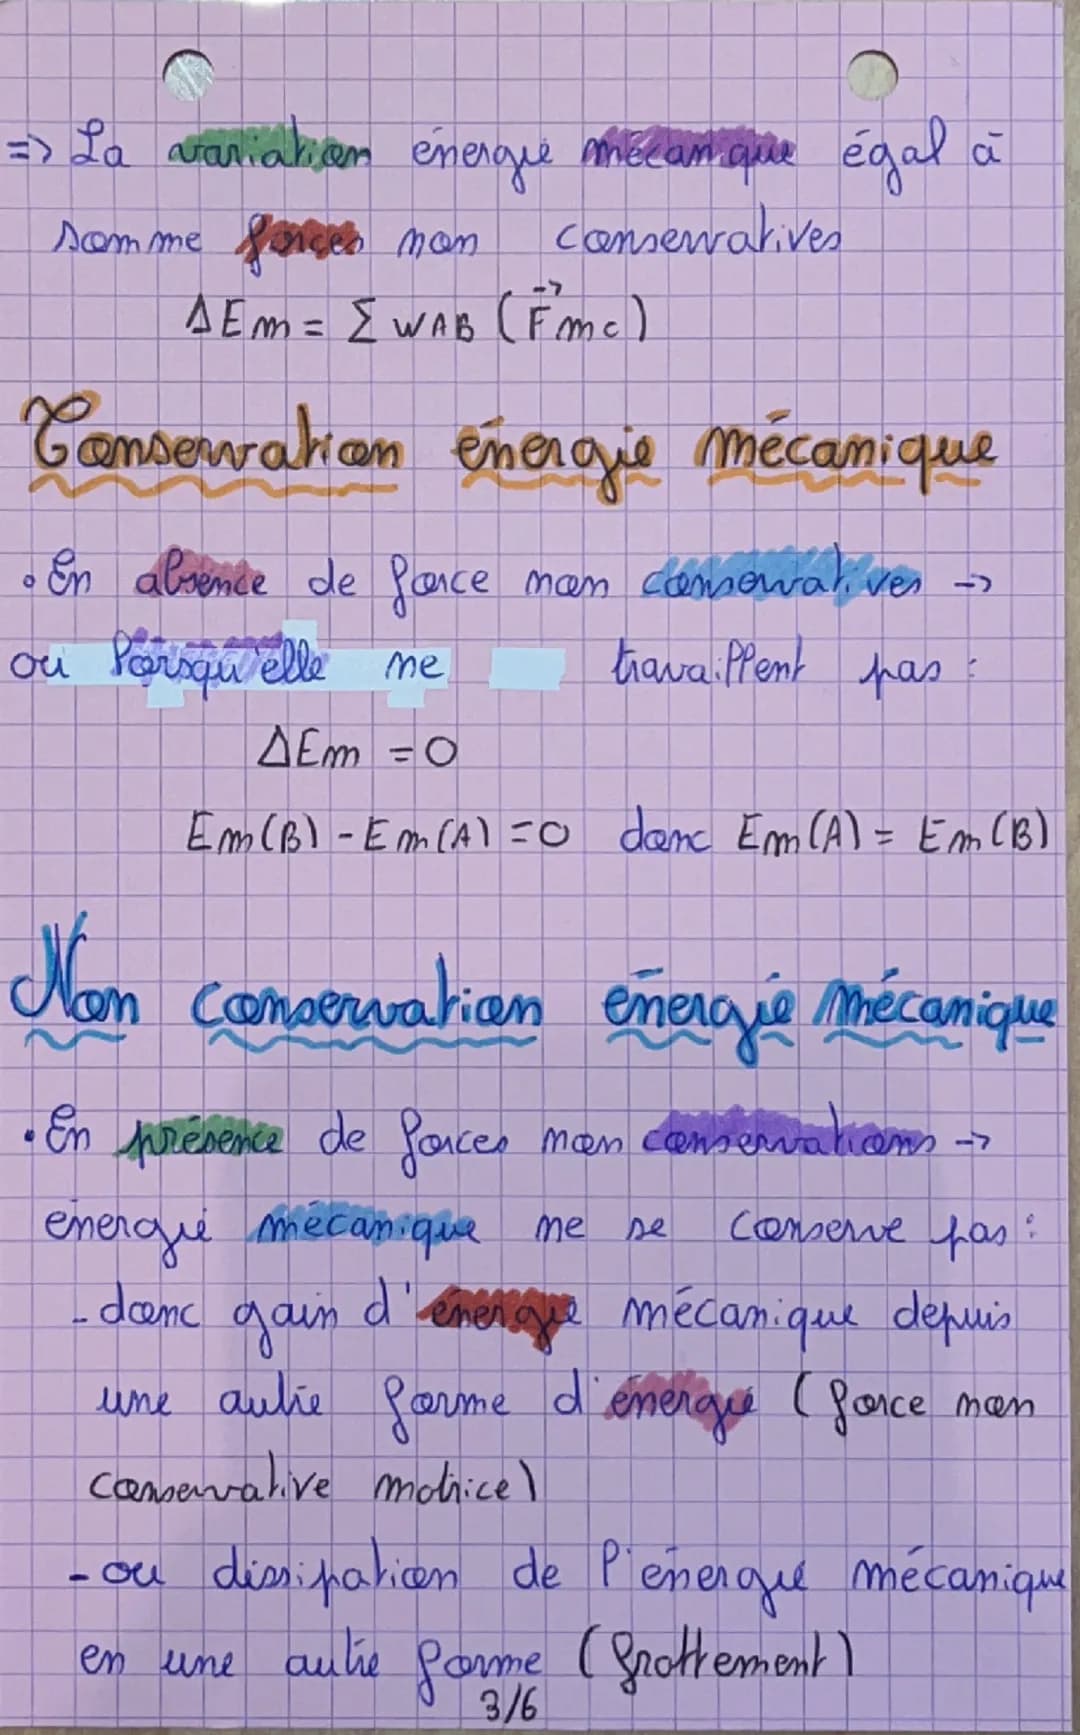 => La variation énergie mécanique égal à
somme forces non conservatives
ΔEm = Σ WAB (F⃗nc)
Conservation énergie mécanique
• En absence de force non conservatives ->
ou lorsqu'elle ne travaillent pas :
ΔEm = 0
Em(B) - Em(A) = 0 donc Em(A) = Em(B)
Non conservation énergie mécanique
• En présence de forces non conservations ->
énergie mécanique ne se conserve pas :
- donc gain d'énergie mécanique depuis
une autre forme d'énergie (force non
conservative motrice)
- ou dissipation de l'énergie mécanique
en une autre forme (frottement)
3/6